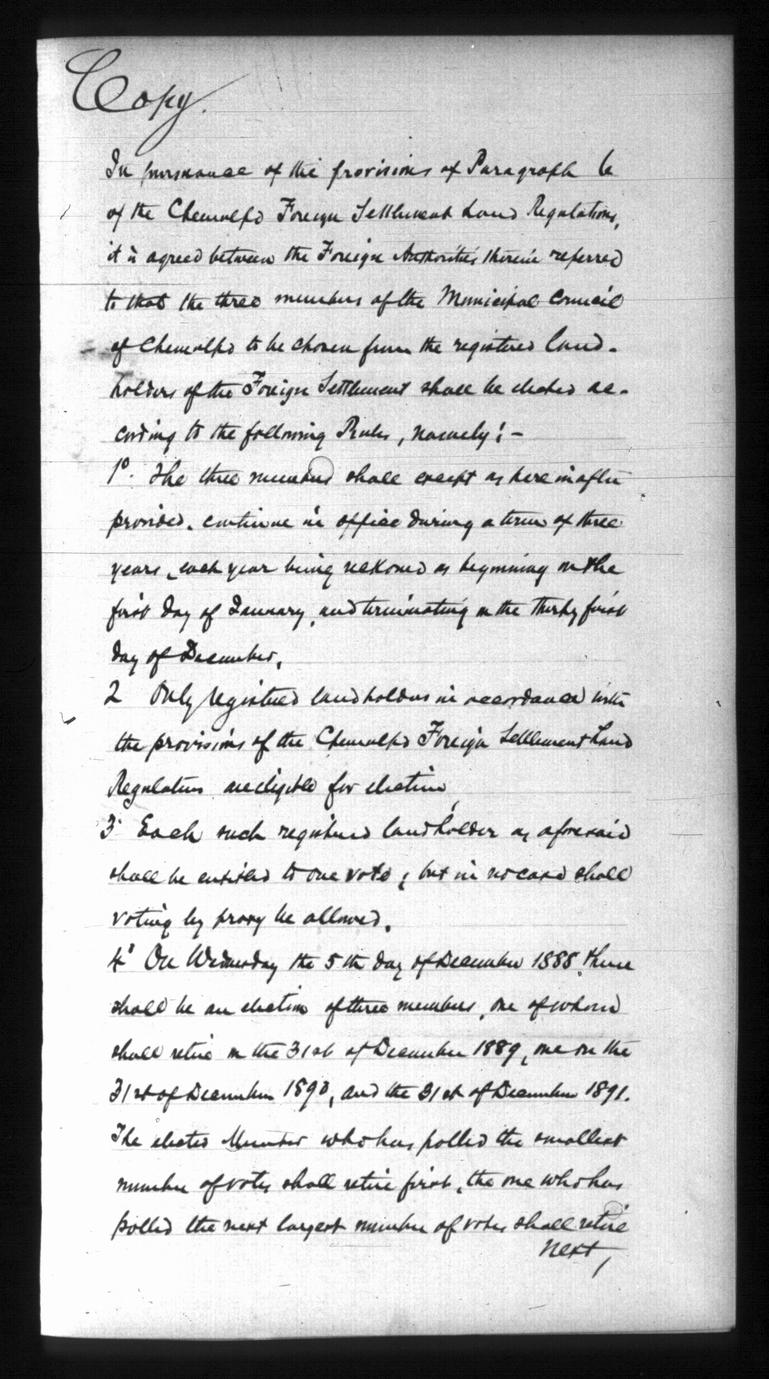 Copy.
In pursuance of the provisions of Paragraph 6
of the Chemulpo Foreign Settlement Land Regulations,
it is agreed between the Foreign Authorities therein referred
to that the three members of the Municipal Council
of Chemulpo to be chosen from the registered land-
holders of the Foreign Settlement shall be elected ac-
cording to the following Rules, namely:-
1º. The three members shall except as hereinafter
provided, continue in office during a term of three
years, each year being reckoned as beginning on the
first day of January, and terminating on the thirty first
day of December.
2 Only registered landholders in accordance with
the provisions of the Chemulpo Foreign Settlement Land
Regulations are eligible for election,
3 Each such registered landholder as aforesaid
shall be entitled to one vote, but in no case shall
voting by proxy be allowed.
4' On Wednesday the 5th day of December 1888 there
shall be an election of three members, one of whom
shall retire on the 31st of December 1889, one on the
31st of December 1890, and the 31st of December 1891.
The elected Member who has polled the smallest
number of votes shall retire first, the one who has
polled the next largest number of votes shall retire
next,